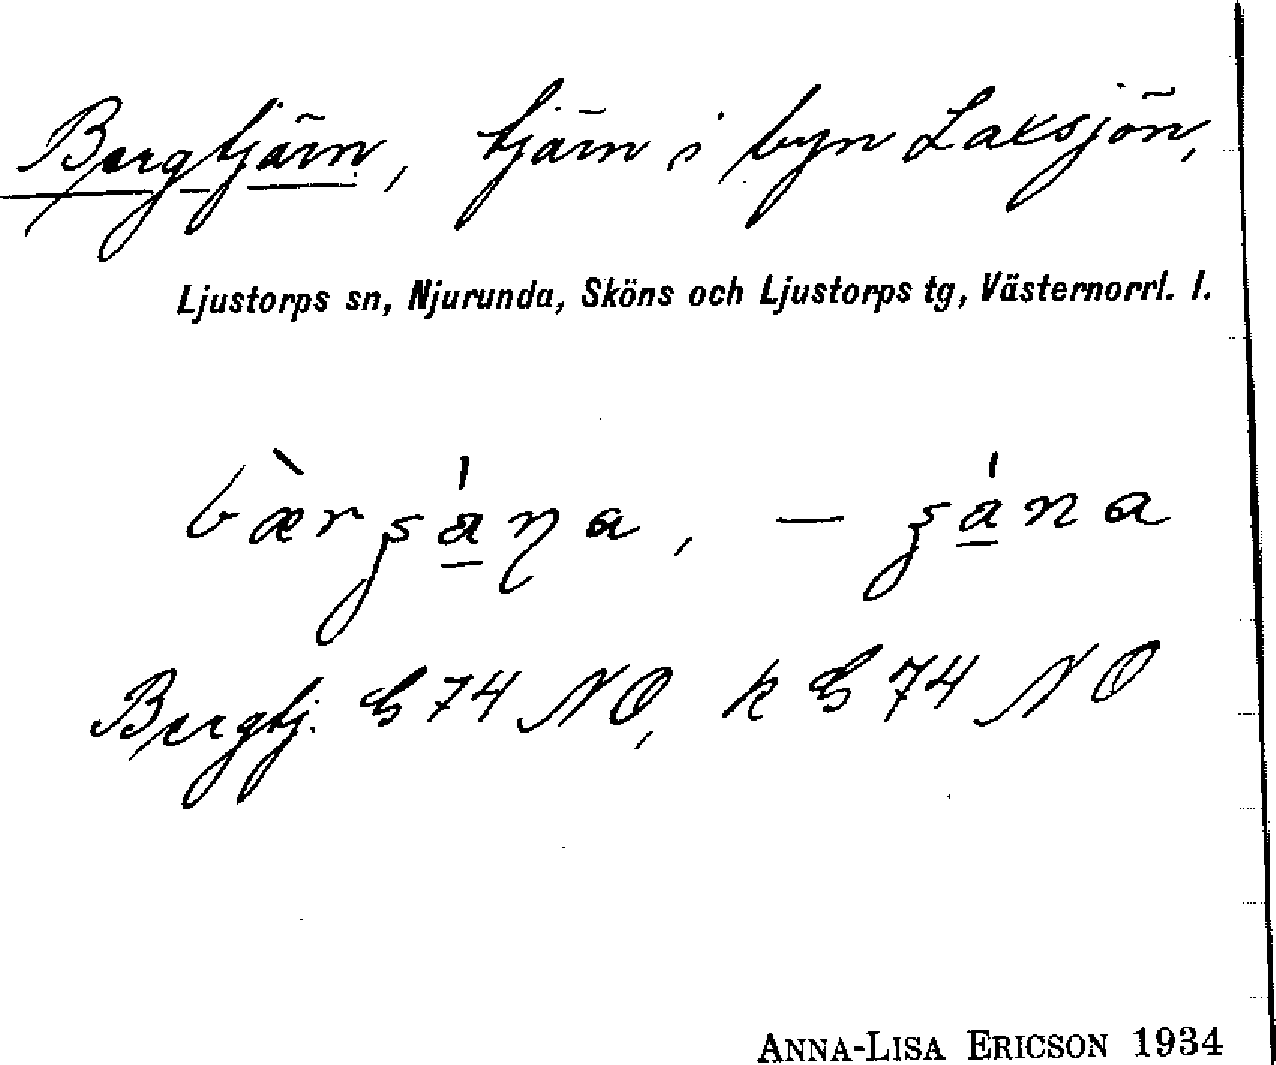 Bergtjärn, tjärn i byn Laksjön,
Ljustorps sn, Njurunda, Sköns och Ljustorps tg, Västernorrl. l.
Bergtj. G 74 NO, k G 74 NO
ANNA-LISA ERICSON 1934